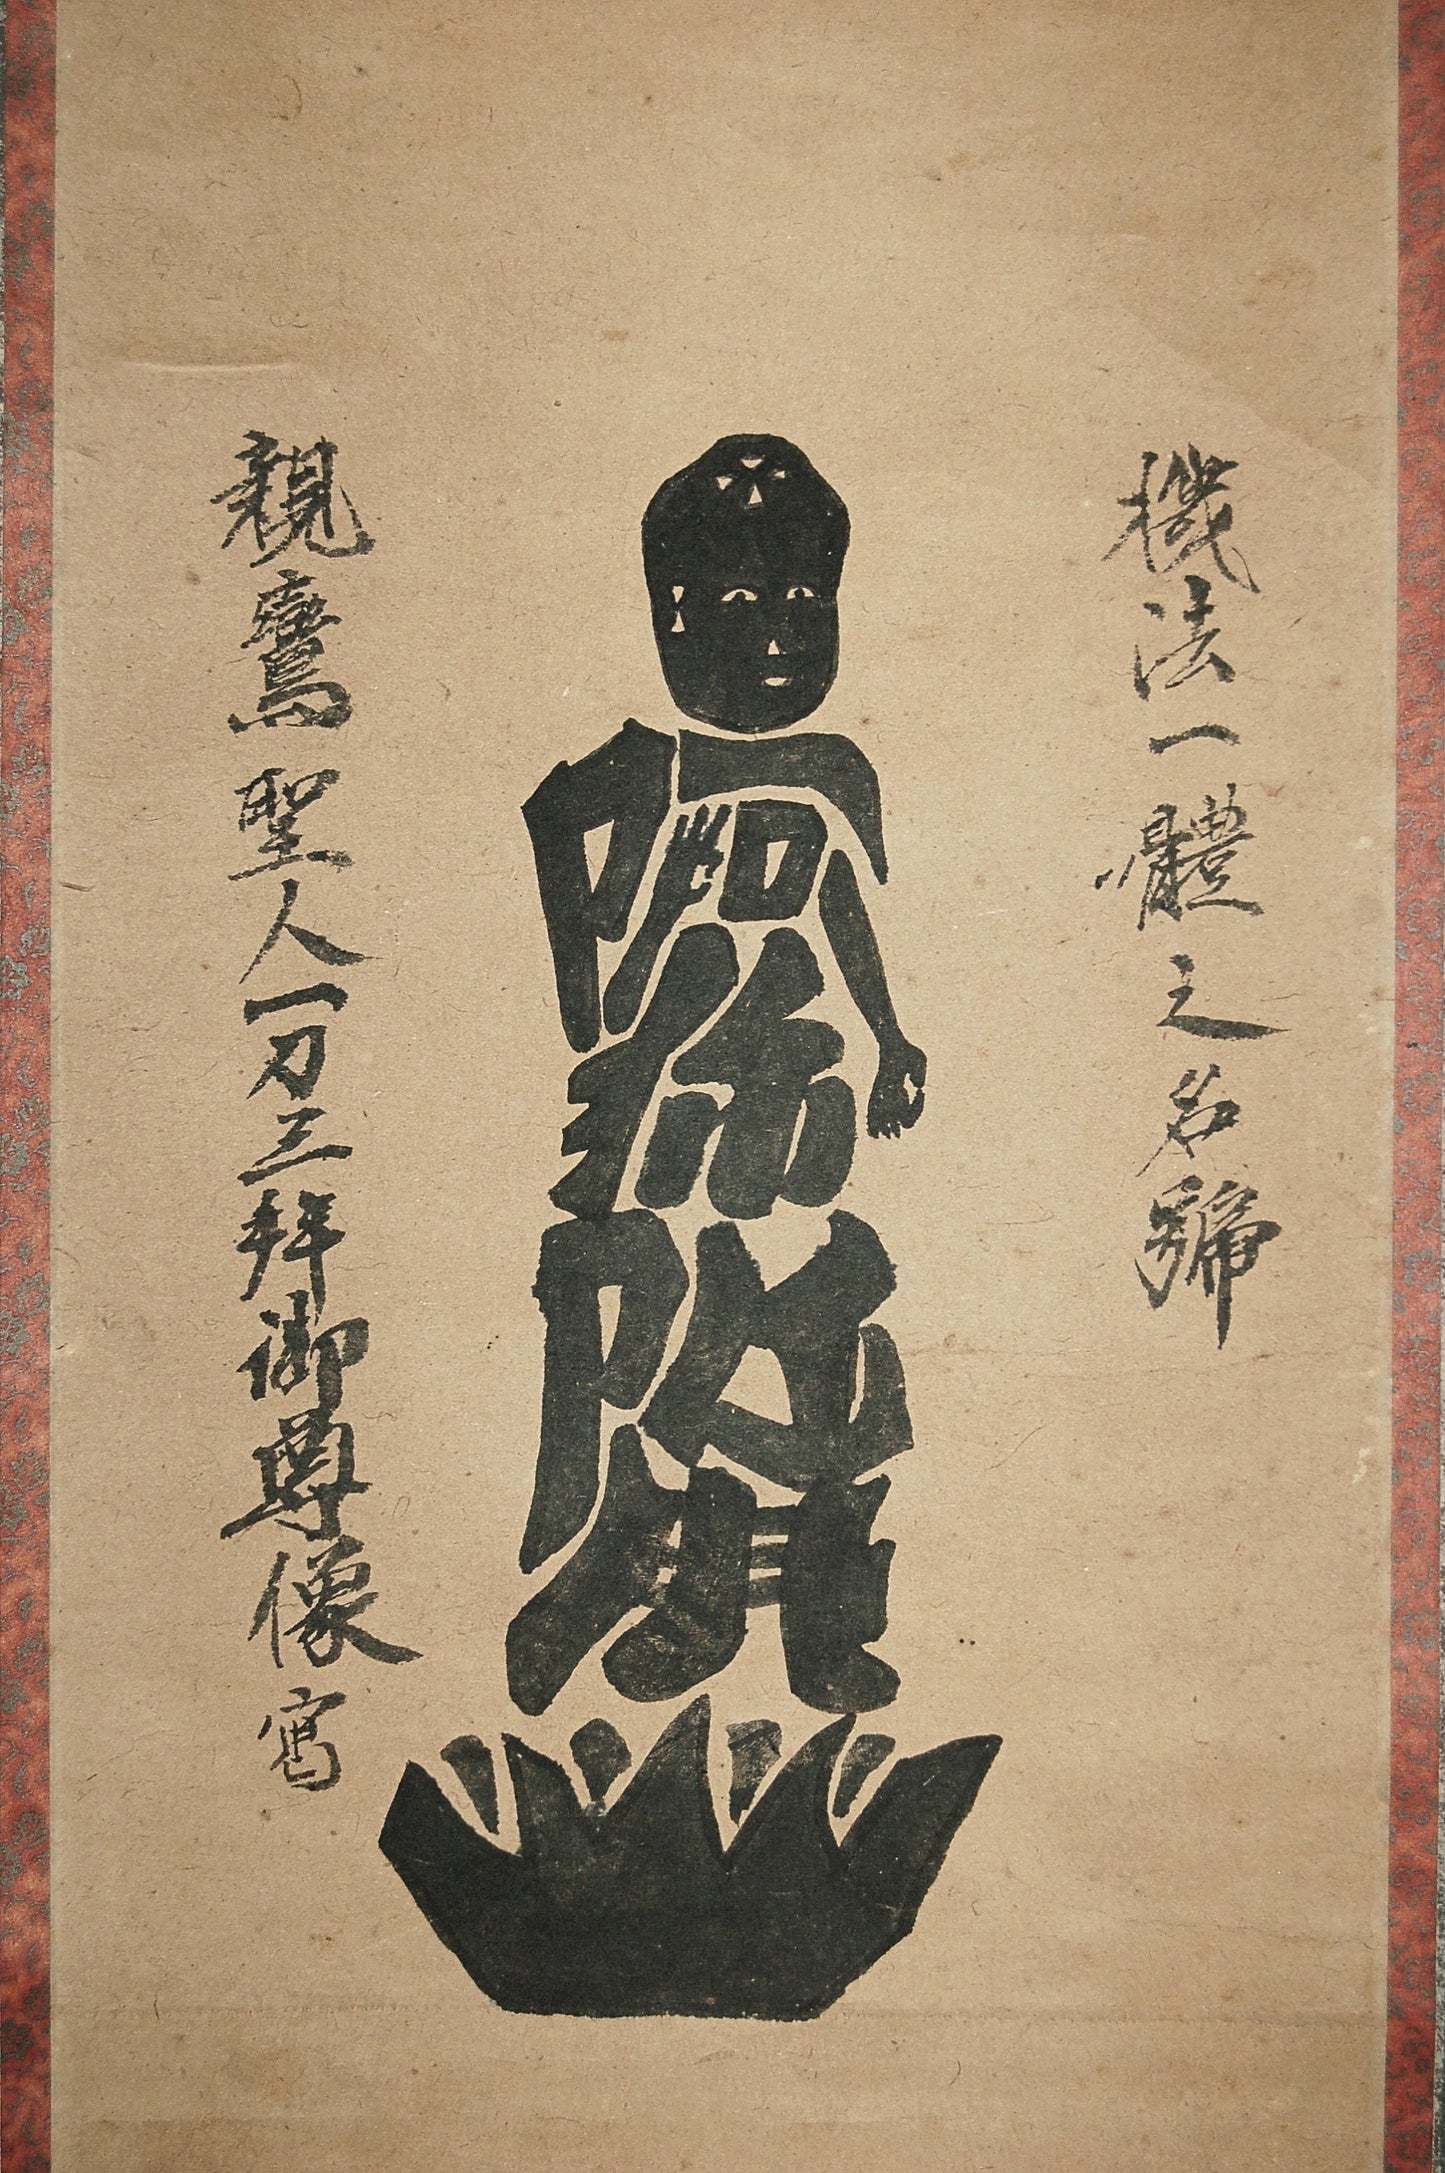 機法一體之名號
阿弥陀佛
親鸞聖人一刀三拜御尊像寫